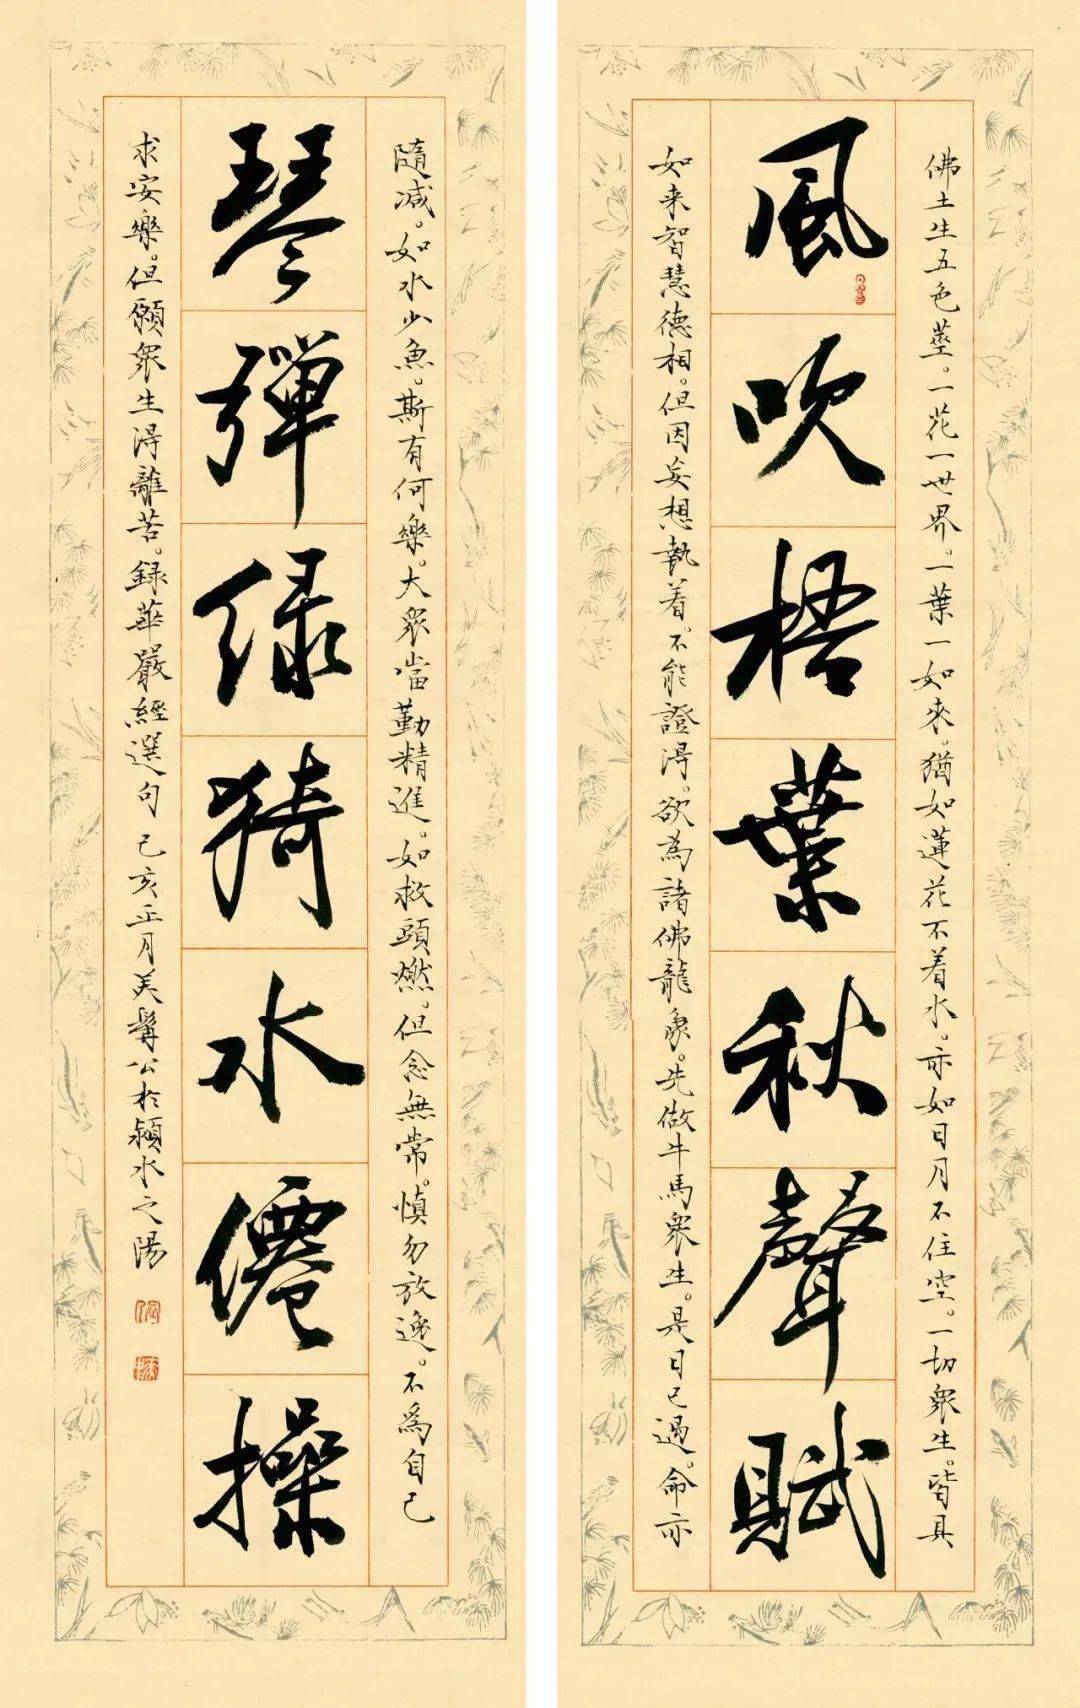 佛土生五色莖。一花一世界。一葉一如來。猶如蓮花不着水。亦如日月不住空。一切眾生。皆具
風吹梧葉秋聲賦
如来智慧德相。但因妄想執着。不能證得。欲為諸佛龍象。先做牛馬眾生。是日已過。命亦
隨减。如水少魚。斯有何樂。大眾當勤精進。如救頭燃。但念無常。慎勿放逸。不為自己
琴彈绿猗水僊操
求安樂。但願眾生得離苦。録華嚴經選句 己亥正月美髯公於潁水之陽